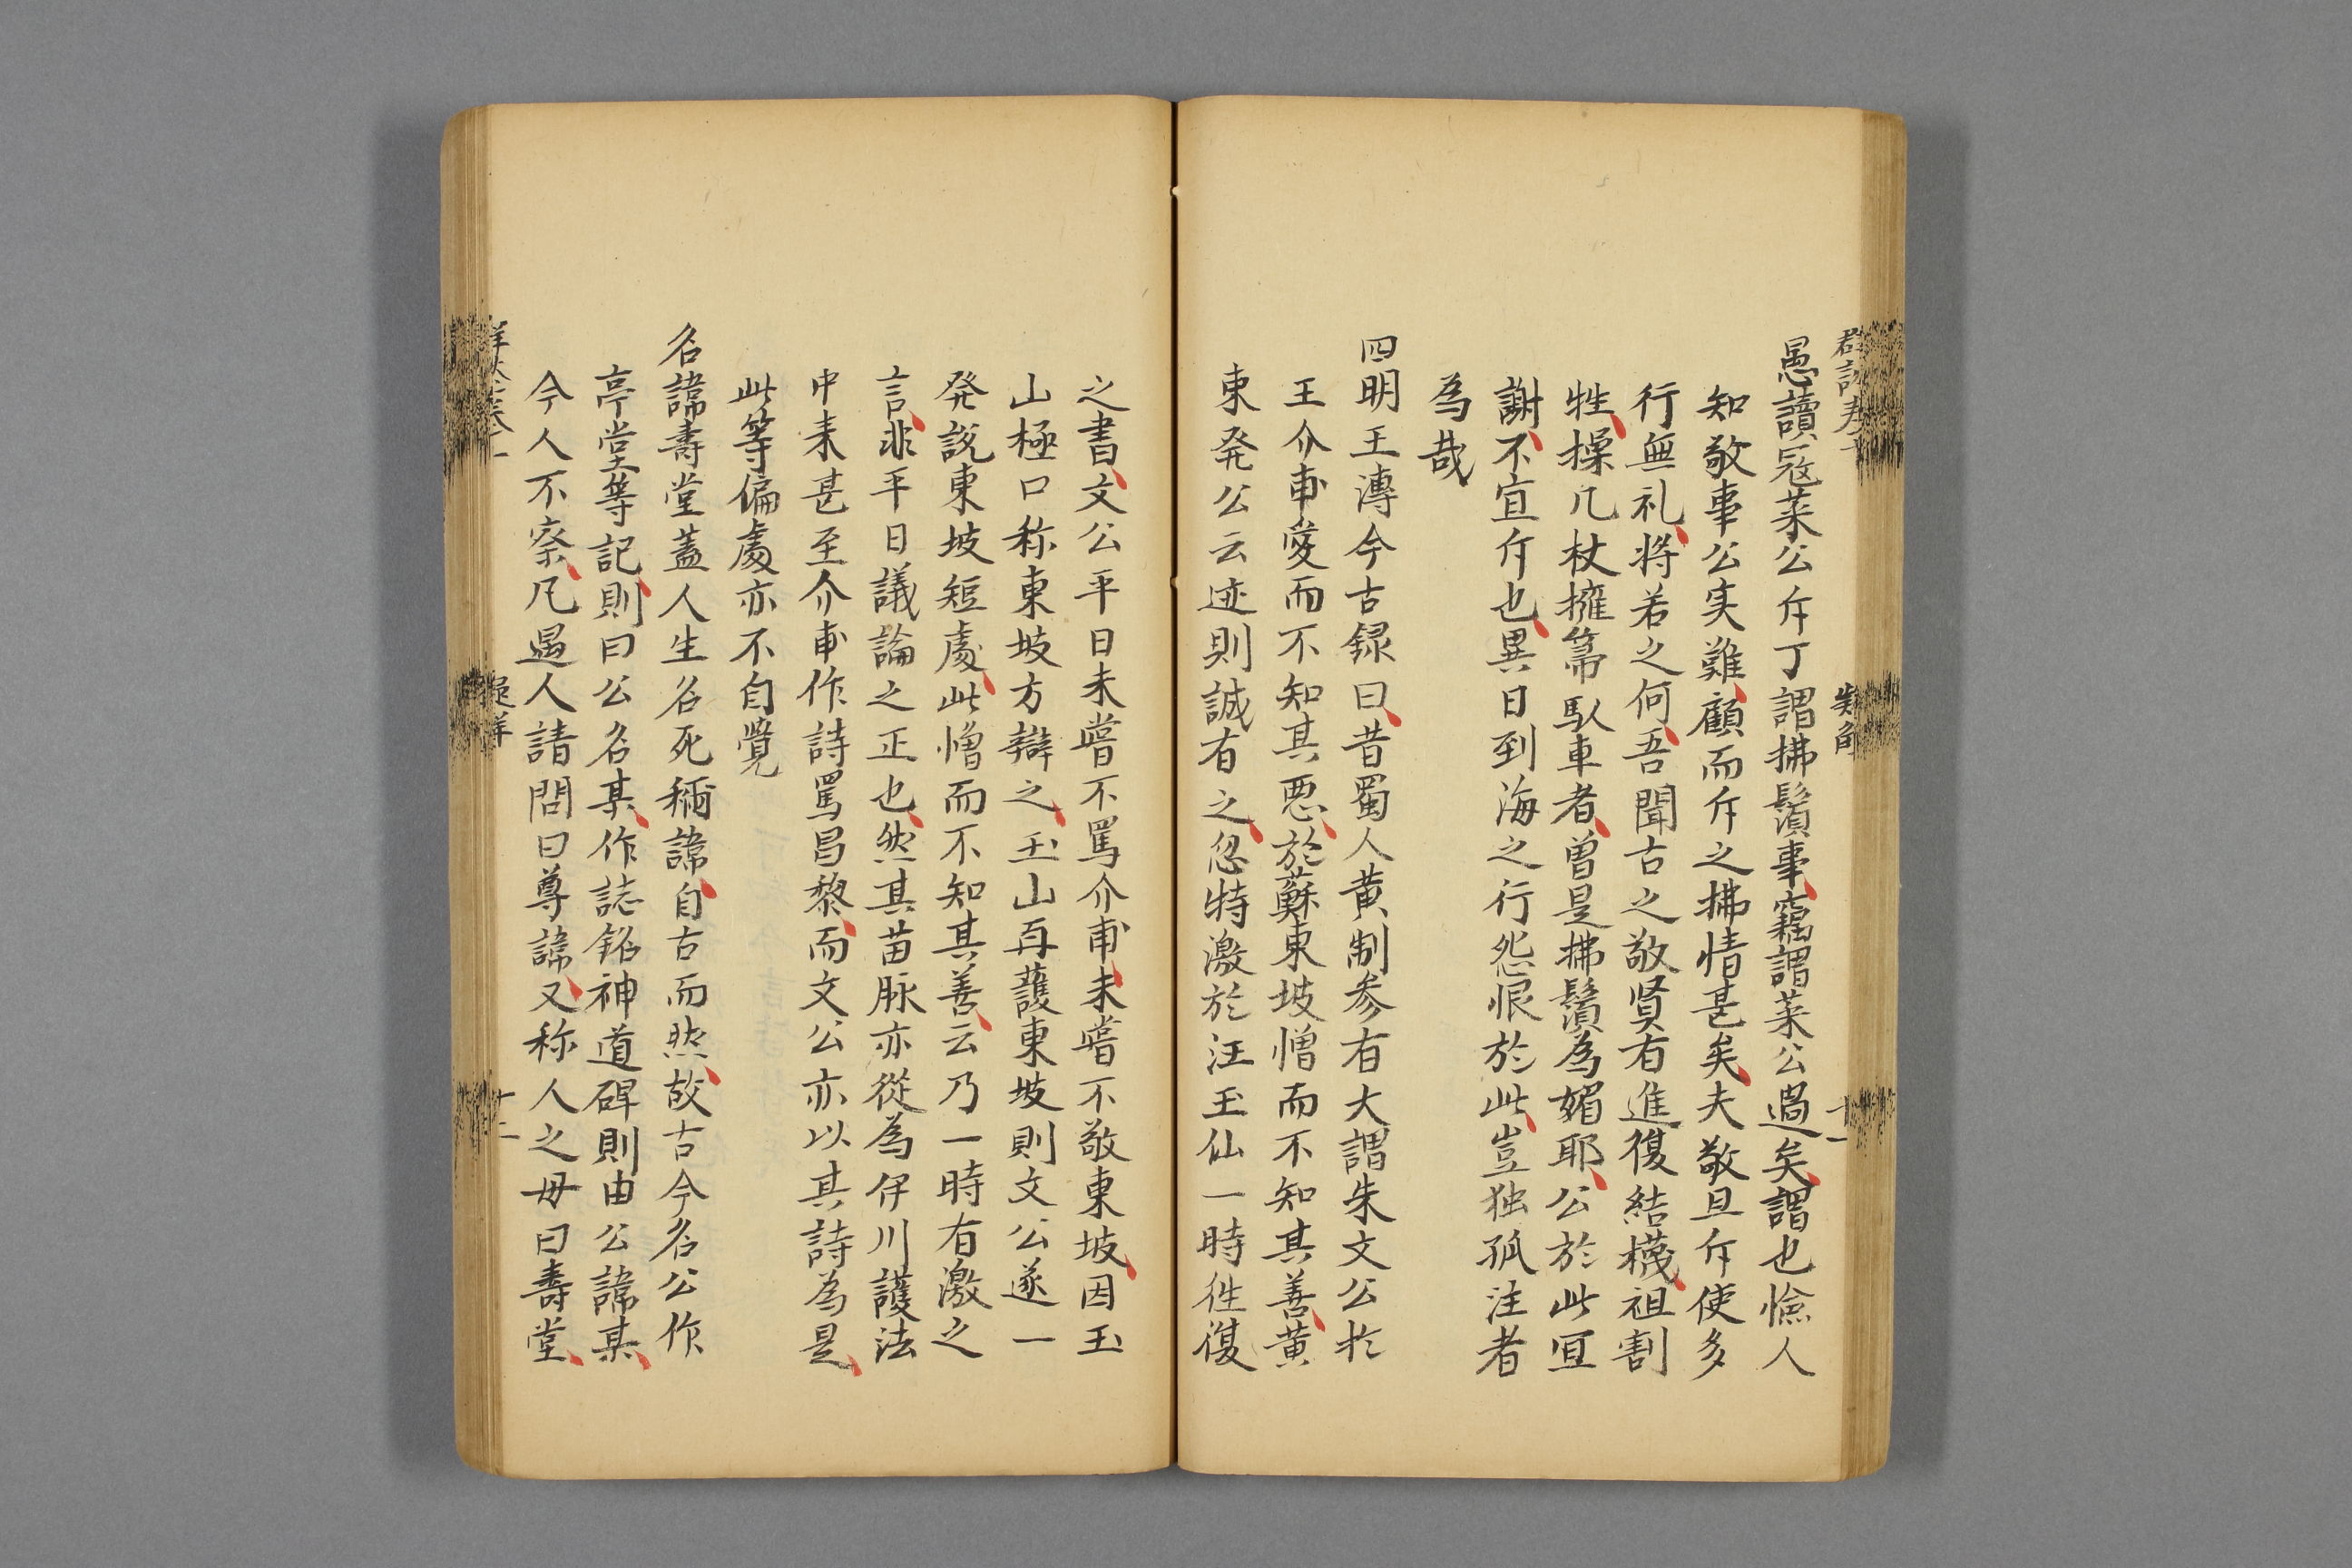 愚讀冦萊公斥丁謂拂鬚事竊謂萊公過矣謂也憸人
知敬事公実難顧而斥之拂情甚矣夫敬且斥使多
行無礼将若之何吾聞古之敬贤有進復結襪袒割
牲操几杖擁箒馭車者曽是拂鬚為媚耶公於此冝
謝不宜斥也異日到海之行怨恨於此豈独孤注者
為哉
四明王溥今古録曰昔蜀人黄制参有大謂朱文公扵
王介甫愛而不知其悪於蘇東坡憎而不知其善黄
東発公云迹則誠有之忽特激於汪玉仙一時徃復
之書文公平日未嘗不罵介甫未嘗不敬東坡因玉
山極口称東坡方辯之玉山再護東坡則文公遂一
発説東坡短處此憎而不知其善云乃一時有激之
言非平日議論之正也然其苗脉亦從為伊川護法
中来甚至介甫作詩罵昌黎而文公亦以其詩為是
此等偏處亦不自覺
名諱壽堂蓋人生名死稱諱自古而然故古今名公作
亭堂等記則曰公名某作誌銘神道碑則由公諱某
今人不察凡遇人請問曰尊諱又称人之母曰壽堂
十二